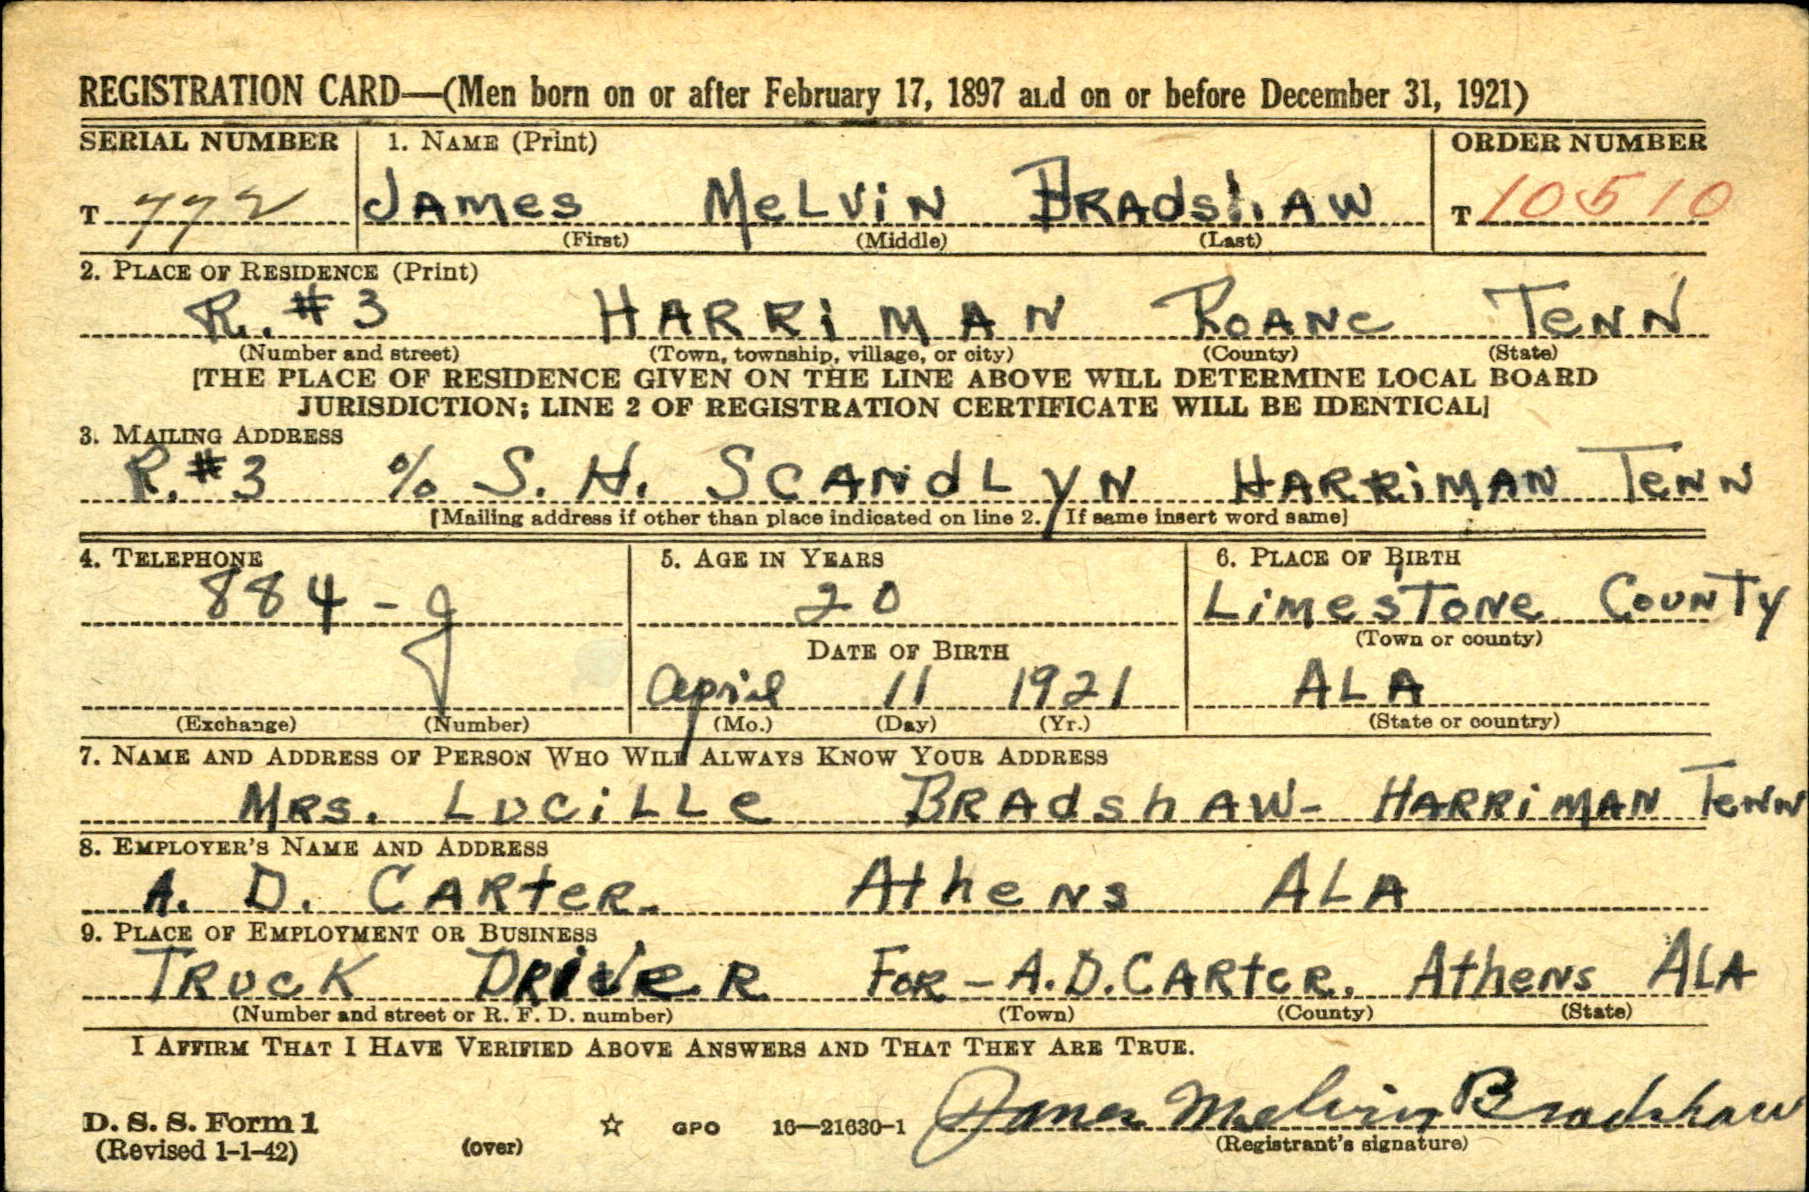 REGISTRATION CARD—(Men born on or after February 17, 1897 and on or before December 31, 1921)
SERIAL NUMBER 1. NAME (Print) ORDER NUMBER
T 772 JAMES MELVIN BRADSHAW T 10510
(First) (Middle) (Last)
2. PLACE OF RESIDENCE (Print)
R. #3 HARRIMAN ROANE TENN
(Number and street) (Town, township, village, or city) (County) (State)
[THE PLACE OF RESIDENCE GIVEN ON THE LINE ABOVE WILL DETERMINE LOCAL BOARD
JURISDICTION; LINE 2 OF REGISTRATION CERTIFICATE WILL BE IDENTICAL]
3. MAILING ADDRESS
R. #3 % S. H. SCANDLYN HARRIMAN TENN
[Mailing address if other than place indicated on line 2. If same insert word same]
4. TELEPHONE 5. AGE IN YEARS 6. PLACE OF BIRTH
884-J 20 LIMESTONE COUNTY
DATE OF BIRTH (Town or county)
April 11 1921 ALA
(Exchange) (Number) (Mo.) (Day) (Yr.) (State or country)
7. NAME AND ADDRESS OF PERSON WHO WILL ALWAYS KNOW YOUR ADDRESS
MRS. LUCILLE BRADSHAW- HARRIMAN TENN
8. EMPLOYER'S NAME AND ADDRESS
A. D. CARTER. Athens ALA
9. PLACE OF EMPLOYMENT OR BUSINESS
TRUCK DRIVER FOR - A.D. CARTER, Athens ALA
(Number and street or R. F. D. number) (Town) (County) (State)
I AFFIRM THAT I HAVE VERIFIED ABOVE ANSWERS AND THAT THEY ARE TRUE.
James Melvin Bradshaw
D. S. S. Form 1 ☆ GPO 16—21630-1
(Revised 1-1-42) (over) (Registrant's signature)